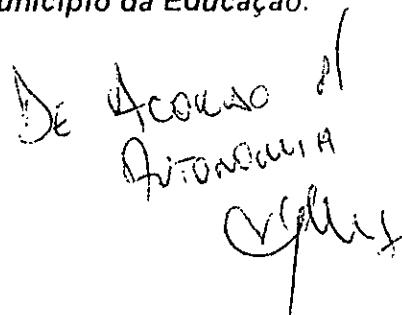 unicípio da Educação.
De Acordo p/
Autonomia